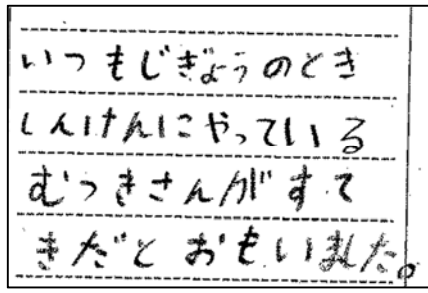 いつもじぎょうのとき
しんけんにやっている
むつきさんがすて
きだとおもいました。